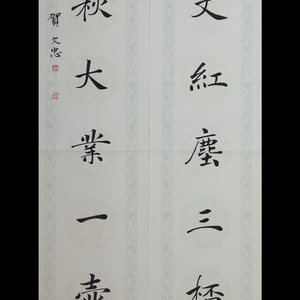 丈紅塵三桮
秋大業一壺
賀文忠